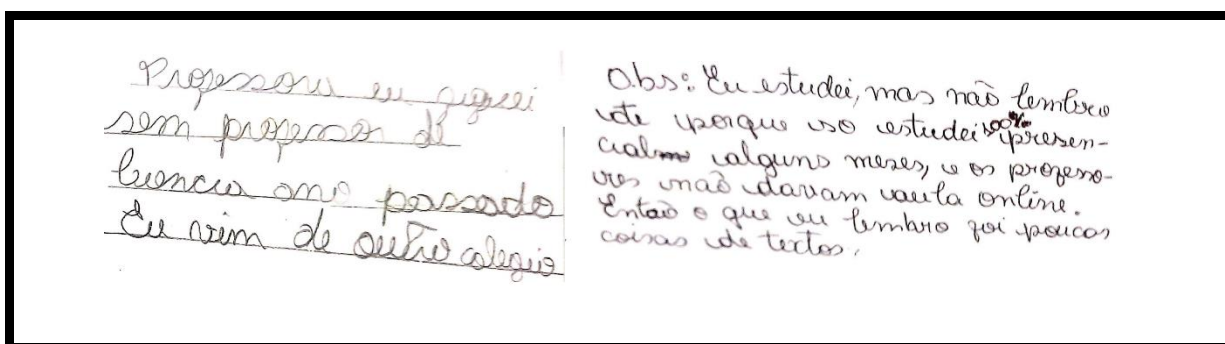 Professora eu fiquei
sem professor de
ciencia ano passado
Eu vim de outro colegio
Obs: Eu estudei, mas não lembro
de porque so estudei 100% presen-
cial alguns meses, e os professo-
res não davam aula online.
Então o que eu lembro foi poucas
coisas de textos.